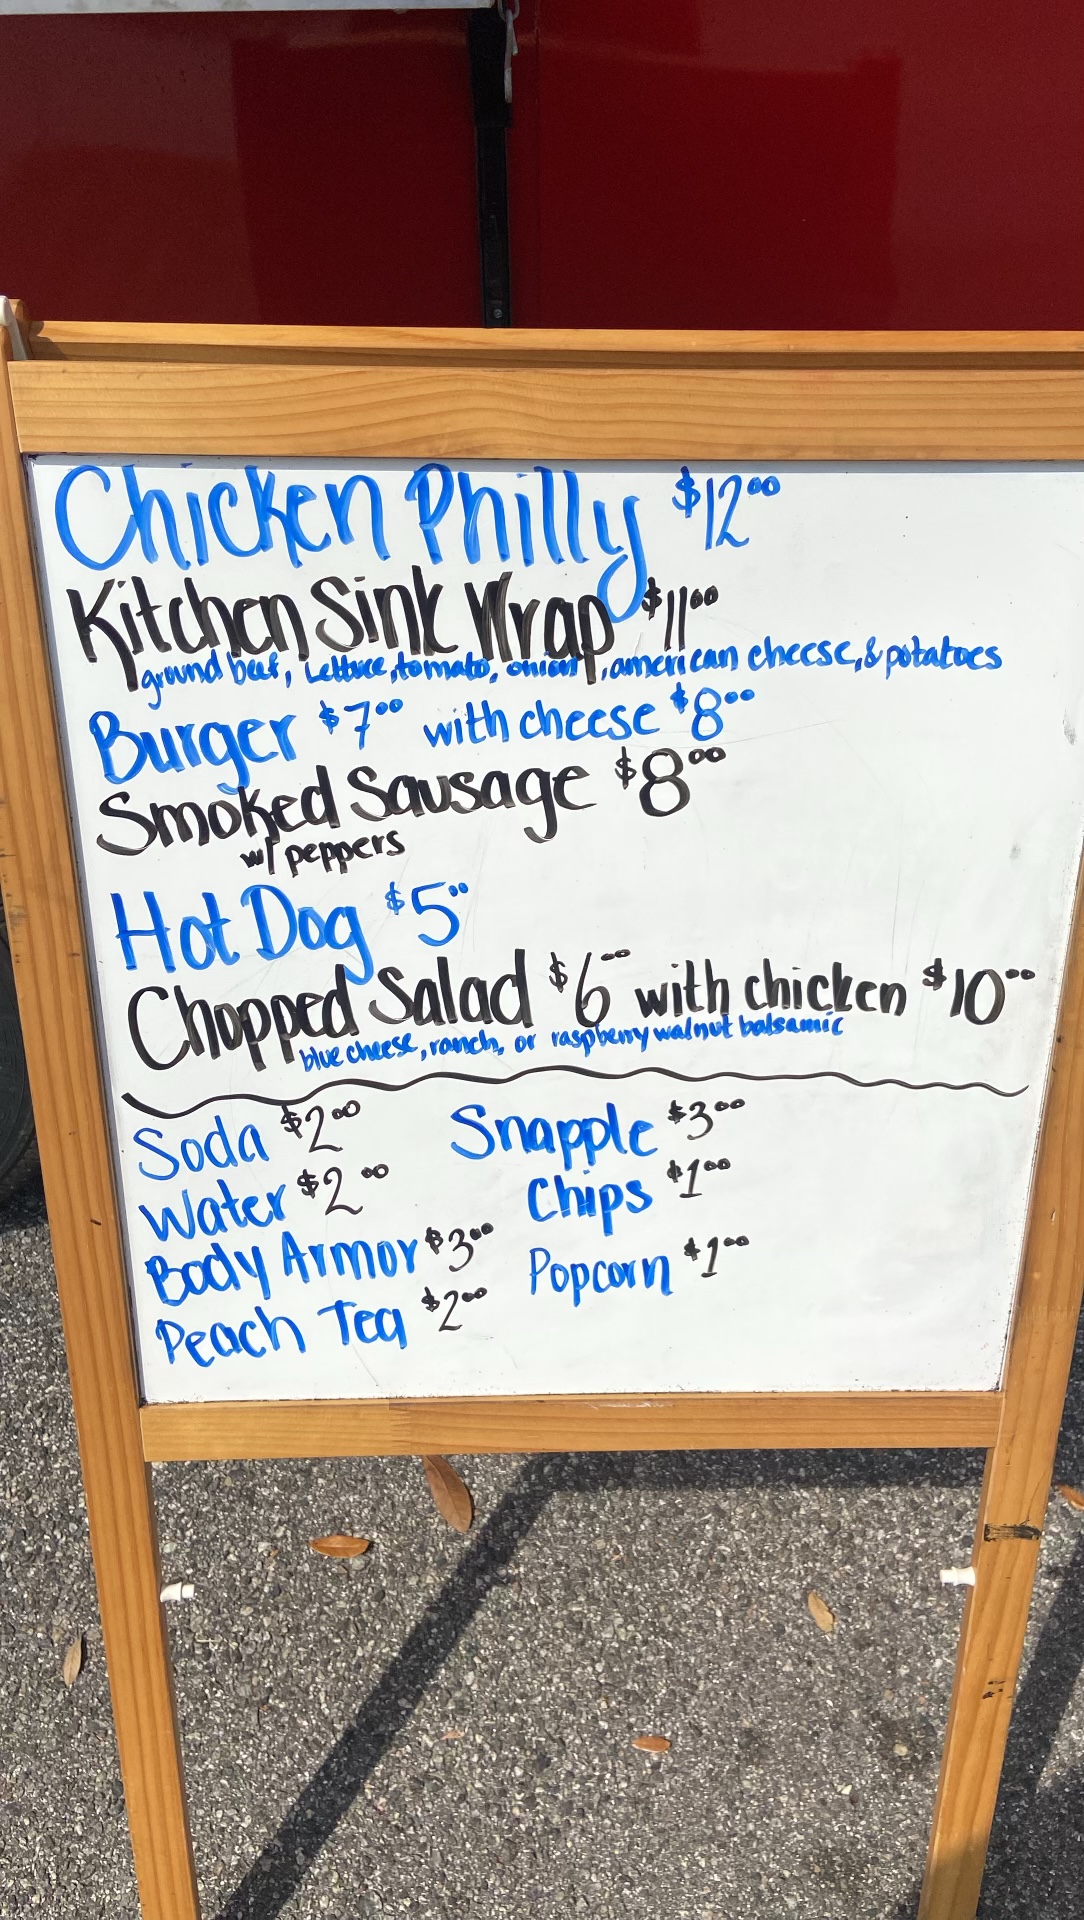 Chicken Philly $12.00
Kitchen Sink Wrap $11.00
ground beef, lettuce, tomato, onion, american cheese, & potatoes
Burger $7.00 with cheese $8.00
Smoked Sausage $8.00
w/ peppers
Hot Dog $5.00
Chopped Salad $6.00 with chicken $10.00
blue cheese, ranch, or raspberry walnut balsamic
Soda $2.00 Snapple $3.00
Water $2.00 Chips $1.00
Body Armor $3.00 Popcorn $1.00
Peach Tea $2.00